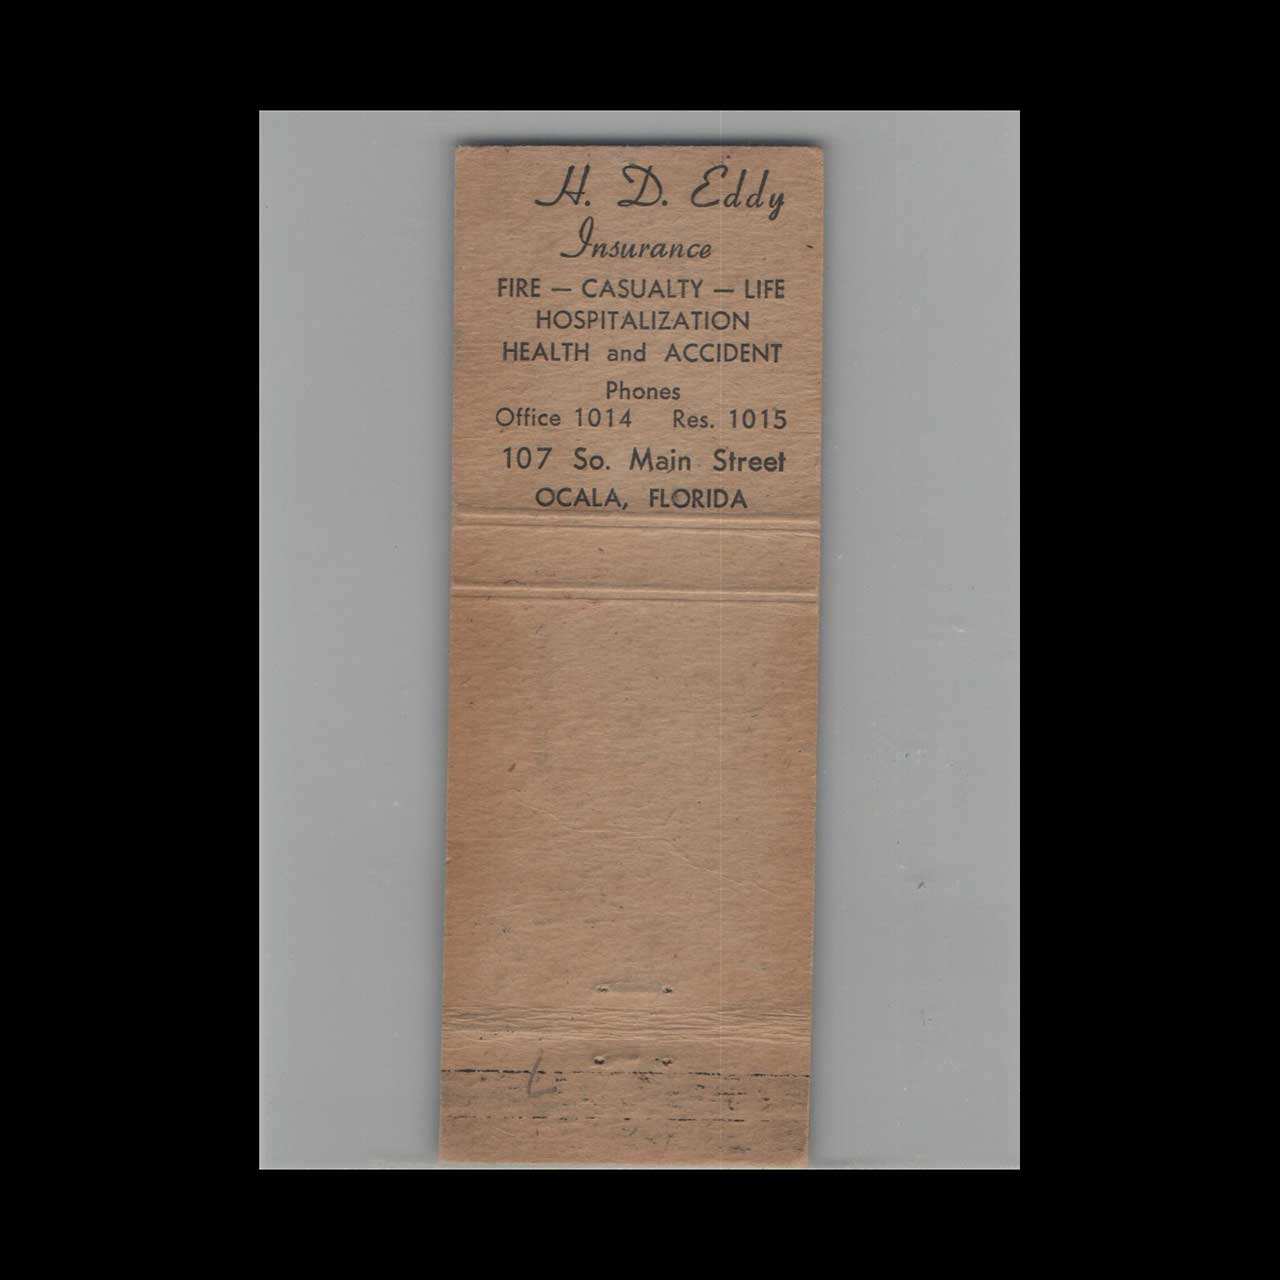 H. D. Eddy
Insurance
FIRE — CASUALTY — LIFE
HOSPITALIZATION
HEALTH and ACCIDENT
Phones
Office 1014 Res. 1015
107 So. Main Street
OCALA, FLORIDA